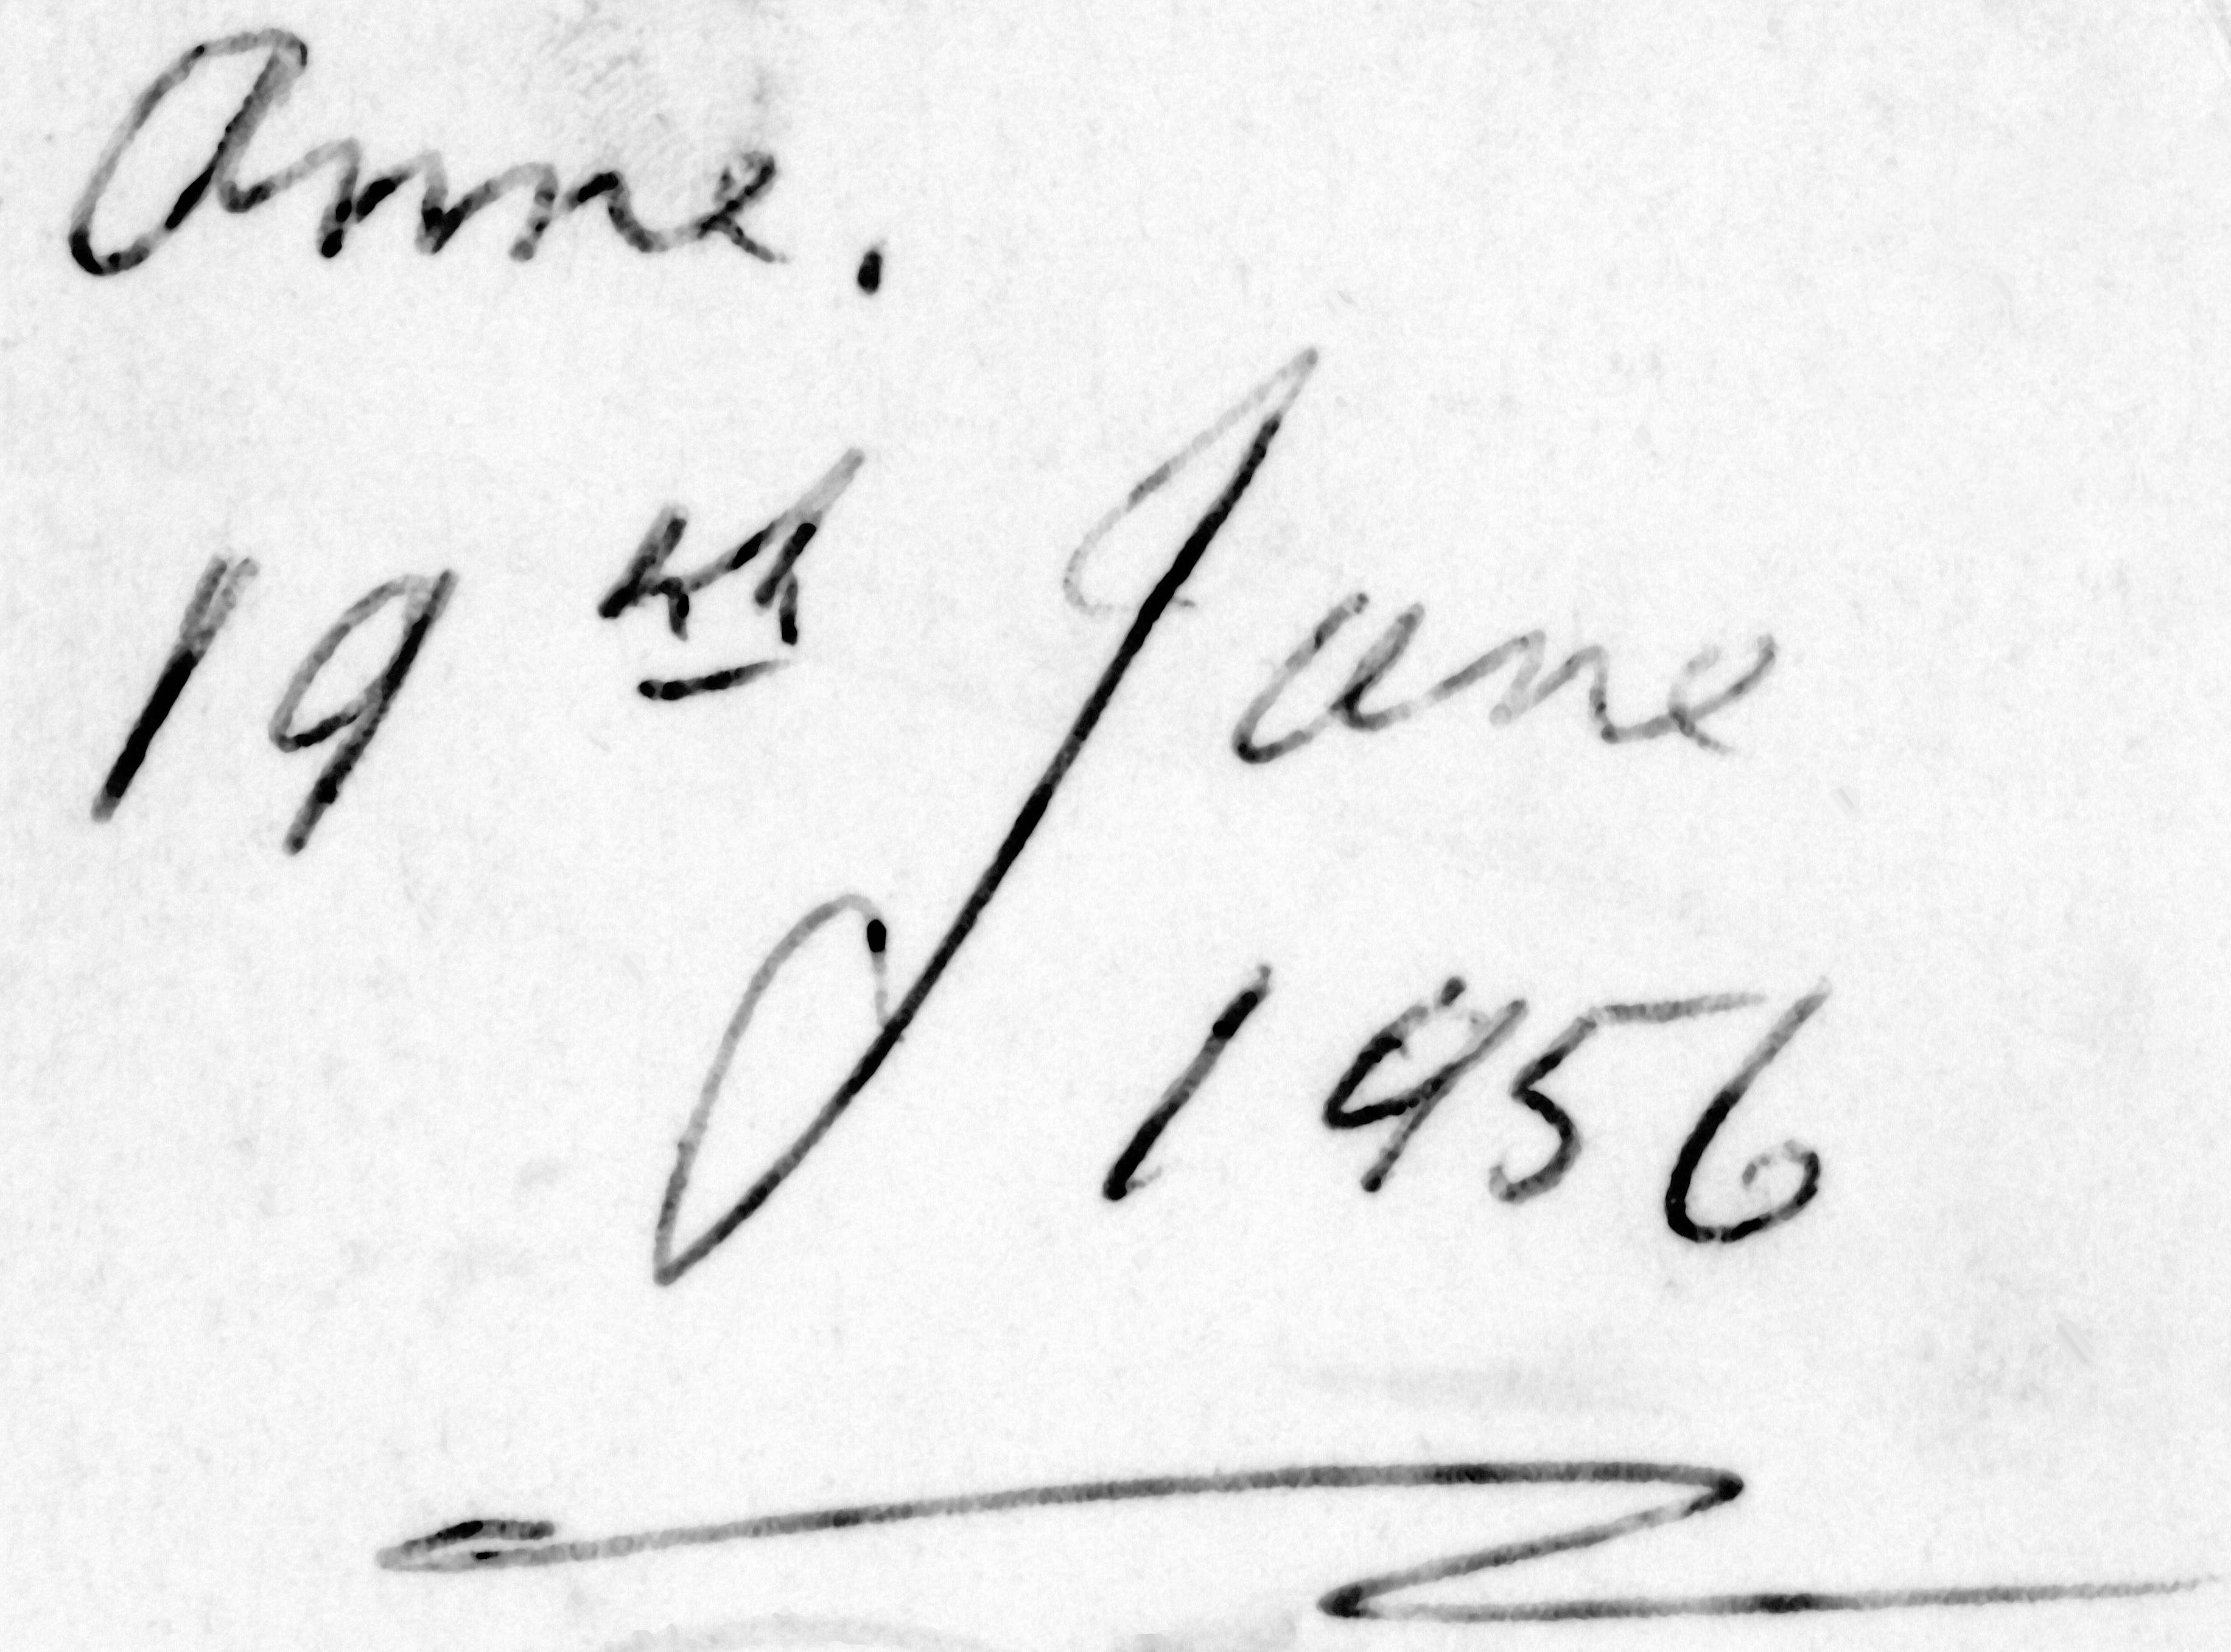 Anne.
19th June
1956